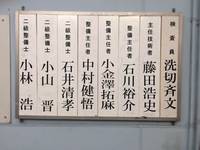 検査員 洗切斉文
主任技術者 藤田浩史
整備主任者 石川裕介
整備主任者 小金澤拓麻
整備主任者 中村健悟
二級整備士 石井清孝
二級整備士 小山晋
二級整備士 小林浩